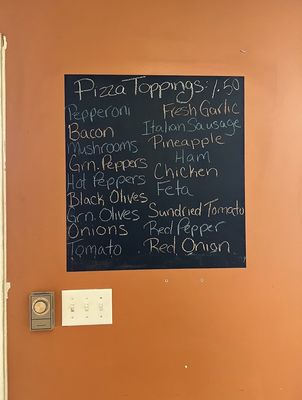 Pizza Toppings: 1.50
Pepperoni
Bacon
Mushrooms
Grn. Peppers
Hot Peppers
Black Olives
Grn. Olives
Onions
Tomato
Fresh Garlic
Italian Sausage
Pineapple
Ham
Chicken
Feta
Sundried Tomato
Red Pepper
Red Onion